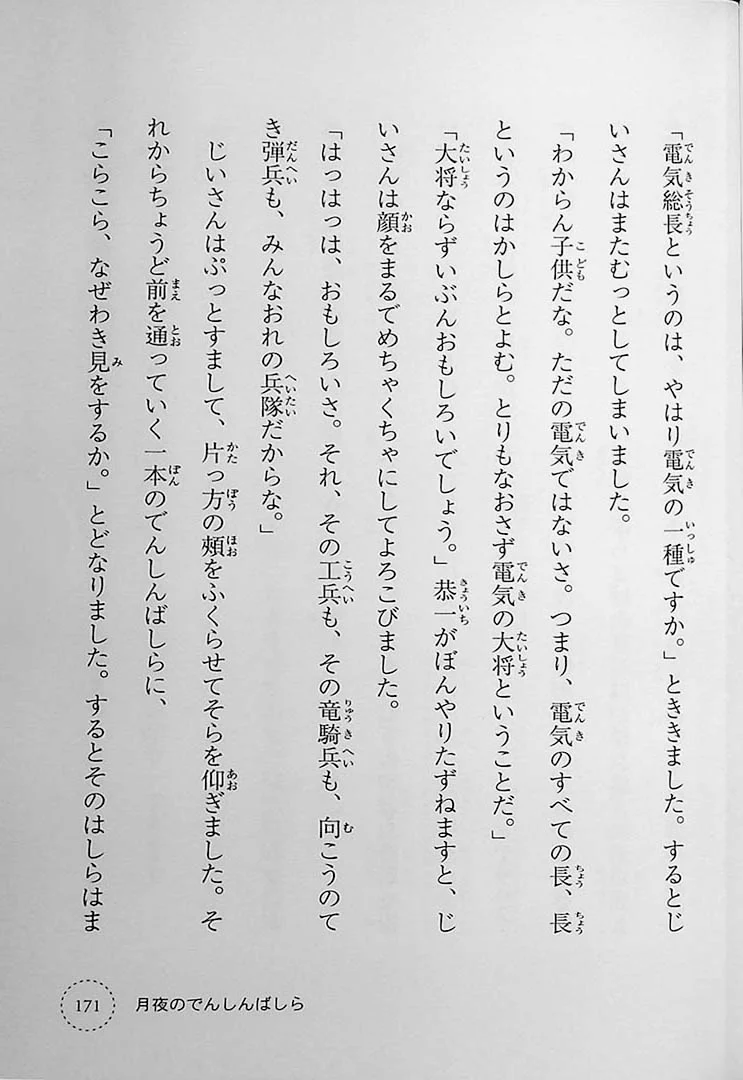 「電気総長というのは、やはり電気の一種ですか。」とききました。するとじ
いさんはまたむっとしてしまいました。
「わからん子供だな。ただの電気ではないさ。つまり、電気のすべての長、長
というのはかしらとよむ。とりもなおさず電気の大将ということだ。」
「大将ならずいぶんおもしろいでしょう。」恭一がぼんやりたずねますと、じ
いさんは顔をまるでめちゃくちゃにしてよろこびました。
「はっはっは、おもしろいさ。それ、その工兵も、その竜騎兵も、向こうのて
き弾兵も、みんなおれの兵隊だからな。」
じいさんはぷっとすまして、片っ方の頰をふくらせてそらを仰ぎました。そ
れからちょうど前を通っていく一本のでんしんばしらに、
「こらこら、なぜわき見をするか。」とどなりました。するとそのはしらはま
171 月夜のでんしんばしら